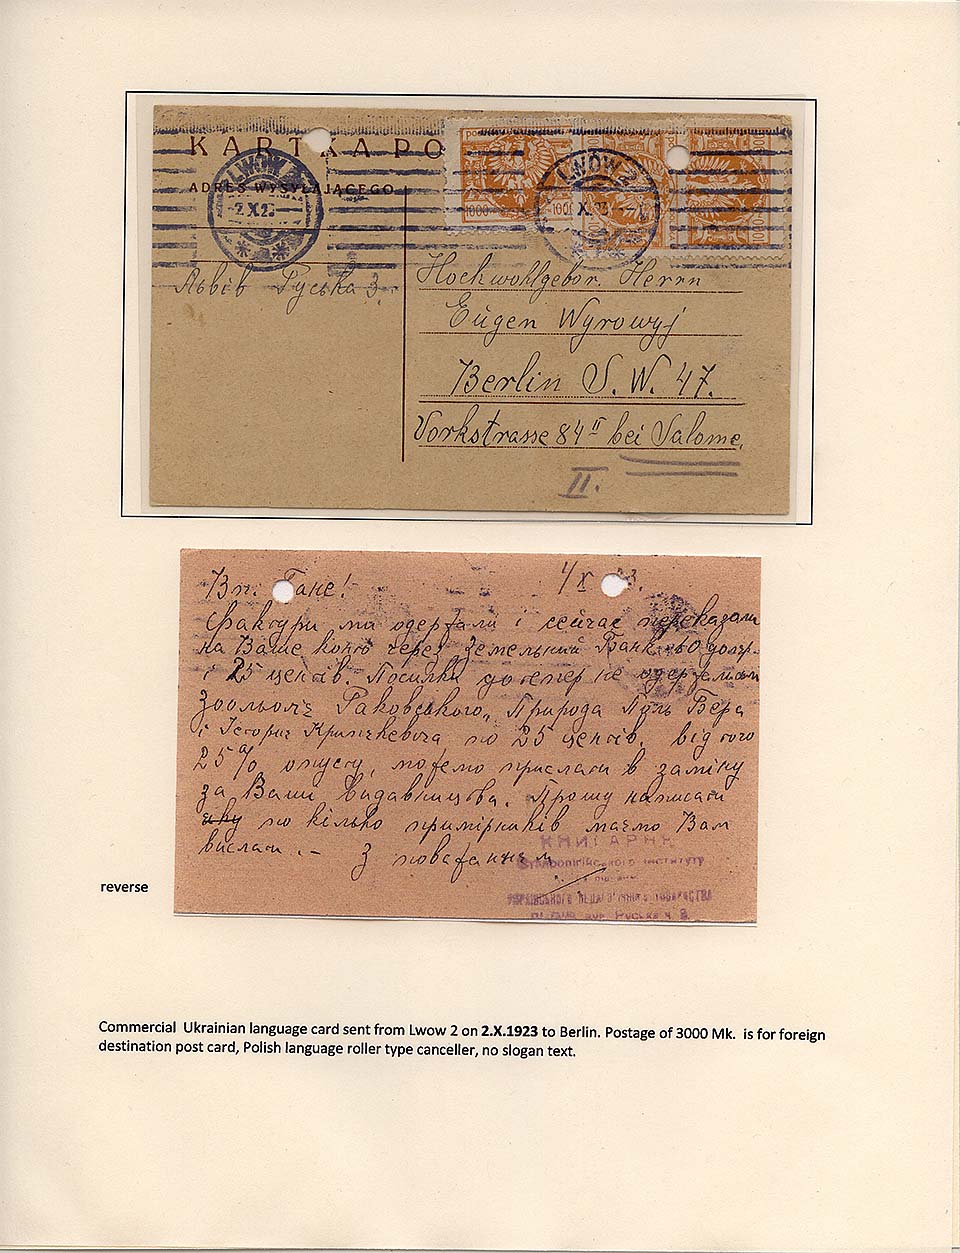 KARTKA PO
ADRES WYSYŁAJĄCEGO
LWÓW 2
2.X.23
LWÓW 2
X.23
1000
1000
1000
Львів Руська 3.
Hochwohlgebor. Herrn
Eugen Wyrowyj
Berlin S. W. 47.
Yorkstrasse 84 II bei Salome,
II.
Вп. Пане!
1/X 23.
Фактури ми одержали і сейчас переказали
на Ваше конто через Земельний Банк
і 25 центів. Посилки дотепер не одержали
Раковського, Природа Бера
і Історія Крипякевича по 25 центів. від того
25% опусту, можемо прислати в заміну
за Ваші видавництва. Прошу написати
по кілько примірників маємо Вам
вислати. – З поважанням
КНИГАРНЯ
Ставропігійського Інституту
УКРАЇНСЬКОГО ПЕДАГОГІЧНОГО ТОВАРИСТВА
Руська ч. 3.
reverse
Commercial Ukrainian language card sent from Lwow 2 on 2.X.1923 to Berlin. Postage of 3000 Mk. is for foreign
destination post card, Polish language roller type canceller, no slogan text.